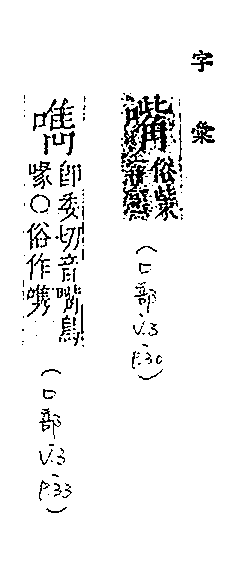 字彙
嘴俗
(口部
V.3
P.30)
即委切音嘴鳥
喙○俗作
(口部
V.3
P.33)